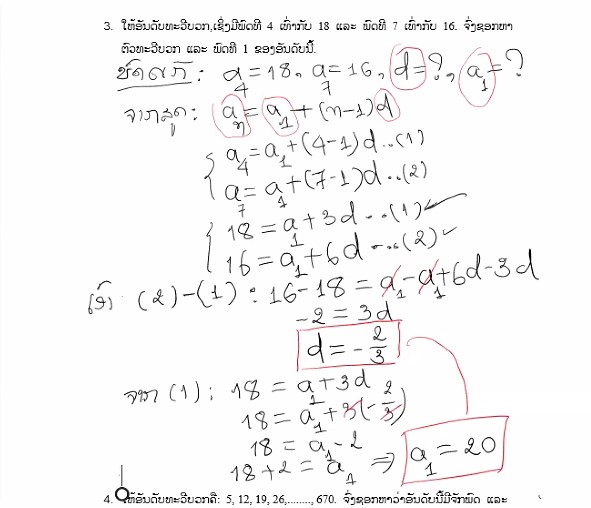 3. ໃຫ້ອັນດັບທະວີບວກ,ເຊິ່ງມີພົດທີ 4 ເທົ່າກັບ 18 ແລະ ພົດທີ 7 ເທົ່າກັບ 16. ຈົ່ງຊອກຫາ
ຕົວທະວີບວກ ແລະ ພົດທີ 1 ຂອງອັນດັບນີ້.
: a₄ = 18, a₇ = 16, d = ?, a₁ = ?
ຈາກສູດ: aₙ = a₁ + (n-1)d
a₄ = a₁ + (4-1)d ..(1)
a₇ = a₁ + (7-1)d ..(2)
18 = a₁ + 3d ...(1)
16 = a₁ + 6d ...(2)
ເອົາ (2)-(1): 16-18 = a₁ - a₁ + 6d - 3d
-2 = 3d
d = -2/3
ຈາກ (1): 18 = a₁ + 3d
18 = a₁ + 3(-2/3)
18 = a₁ - 2
18 + 2 = a₁ ⇒ a₁ = 20
4. ໃຫ້ອັນດັບທະວີບວກຄື: 5, 12, 19, 26,........, 670. ຈົ່ງຊອກຫາວ່າອັນດັບນີ້ມີຈັກພົດ ແລະ